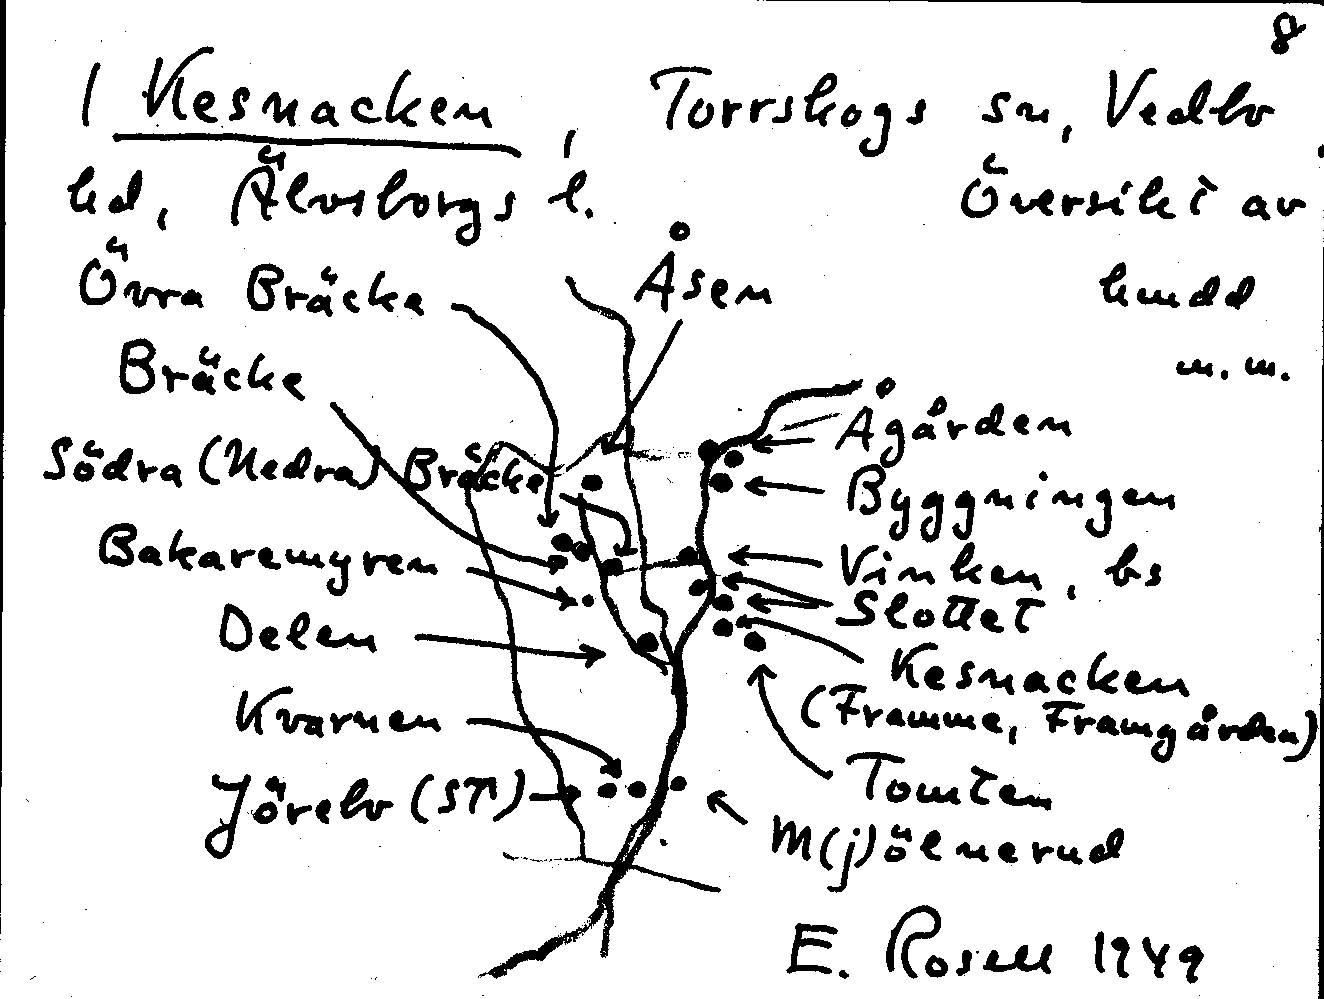 8
1 Kesnacken, Torrskogs sn, Vedbo
hd, Älvsborgs l. Översikt av
Övra Bräcka Åsen hmdd
Bräcke m.m.
Södra (Nedra) Bräcke Ågården
Byggningen
Bakaremyren Vinken, bs
Slottet
Delen
Kesnacken
(Framme, Framgården)
Kvarnen
Tomten
Jörelv (ST)
M(j)ölnerud
E. Rosell 1949